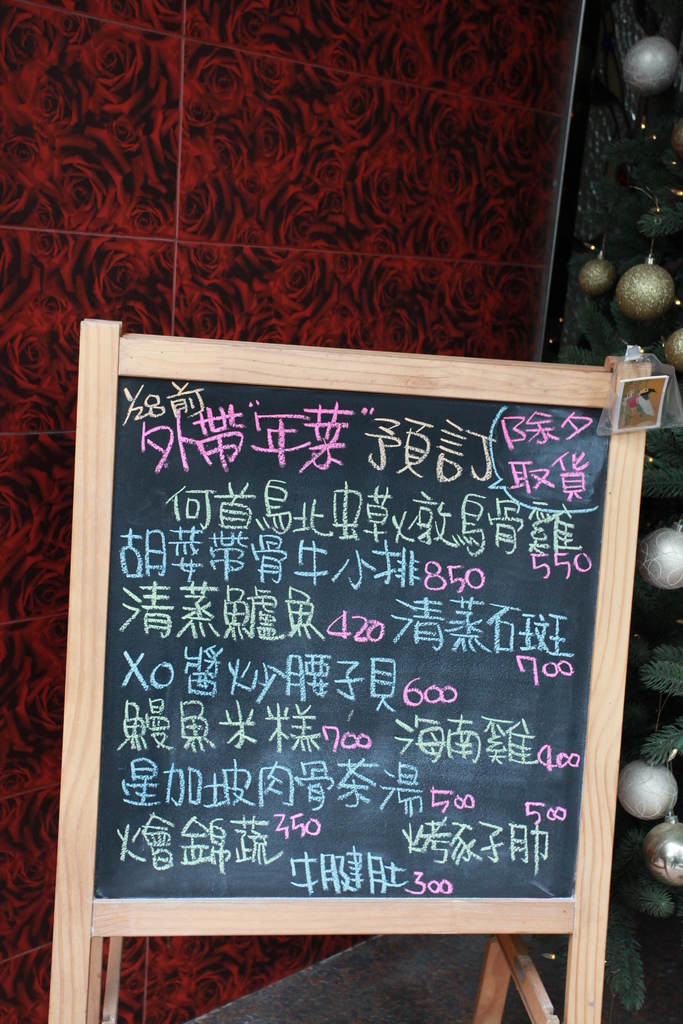 1/28前
外帶"年菜"預訂
除夕
取貨
何首烏北虫草燉烏骨雞 550
胡蔴帶骨牛小排 850
清蒸鱸魚 420 清蒸石斑 700
XO醬炒腰子貝 600
鰻魚米糕 700 海南雞 400
星加坡肉骨茶湯 500
燴錦蔬 350 烤豬肋 500
牛腱肚 300